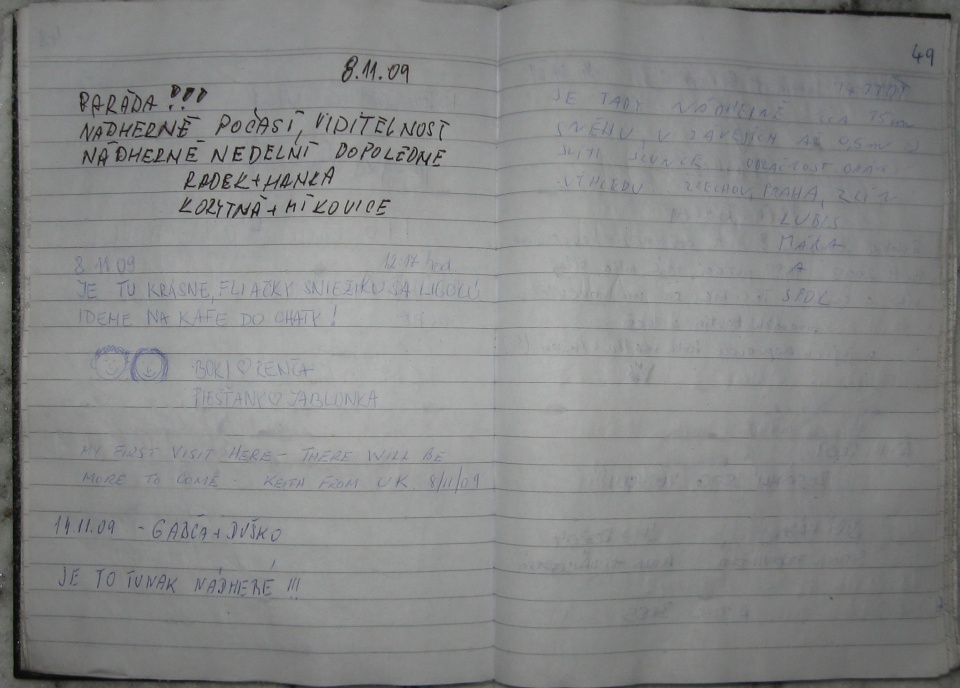 8.11.09
PARÁDA !!!
NÁDHERNÉ POČASÍ, VIDITELNOST
NÁDHERNÉ NEDELNÍ DOPOLEDNE
RADEK + HANKA
KORYTNÁ + MÍKOVICE
8.11.09 12:17 hod.
JE TU KRÁSNE, FLIAČKY SNIEŽIKU SA LIGOCÚ
IDEME NA KAFE DO CHATY!
BOKI ♡ ZENČA
PIEŠŤANY ♡ JABLONKA
MY FIRST VISIT HERE - THERE WILL BE
MORE TO COME. KEITH FROM UK 8/11/09
14.11.09 - GABČA + DUŠKO
JE TO TUNAK NÁDHERÉ !!!
49
JE TADY NÁDHERNĚ CCA 15cm
SNĚHU V ZÁVĚJÍCH AŽ 0,5m
SVÍTÍ SLUNCE
PRAHA, ZLÍN
LUBIŠ
MÁRA
A